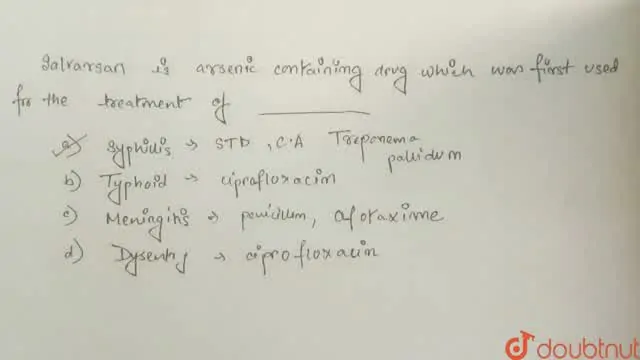 Salvarsan is arsenic containing drug which was first used
for the treatment of ________
a) Syphilis → STD, C.A Treponema
pallidum
b) Typhoid → ciprofloxacin
c) Meningitis → penicillium, cefotaxime
d) Dysentry → ciprofloxacin
doubtnut